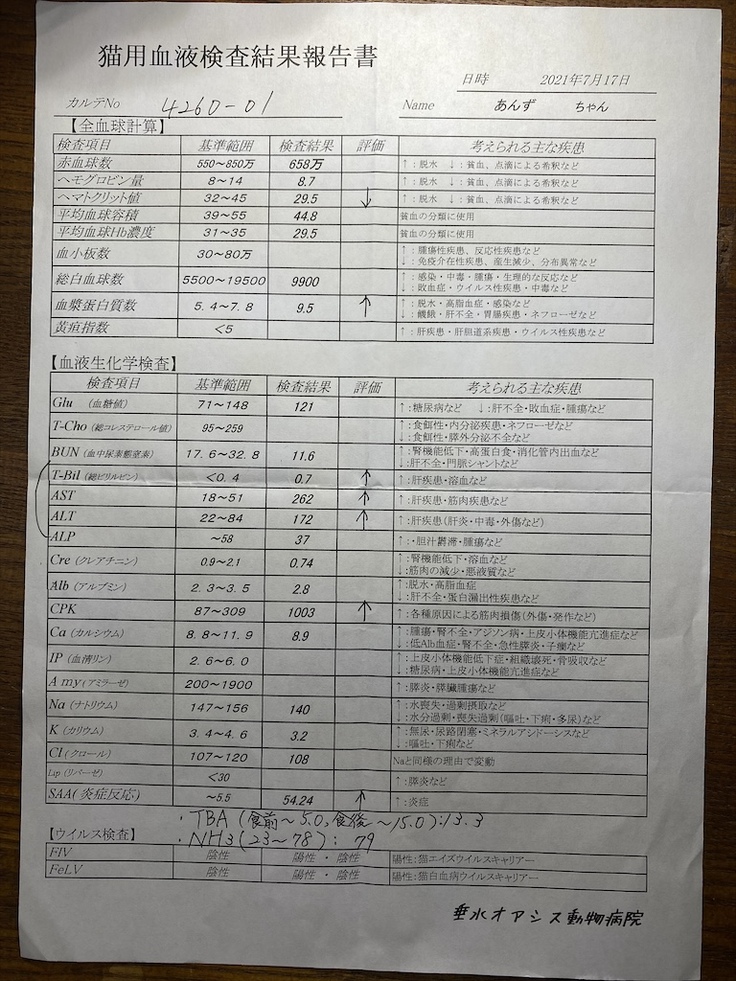 猫用血液検査結果報告書
日時 2021年7月17日
カルテNo 4260-01 Name あんず ちゃん
【全血球計算】
検査項目 基準範囲 検査結果 評価 考えられる主な疾患
赤血球数 550～850万 658万 ↑：脱水 ↓：貧血、点滴による希釈など
ヘモグロビン量 8～14 8.7 ↑：脱水 ↓：貧血、点滴による希釈など
ヘマトクリット値 32～45 29.5 ↓ ↑：脱水 ↓：貧血、点滴による希釈など
平均血球容積 39～55 44.8 貧血の分類に使用
平均血球Hb濃度 31～35 29.5 貧血の分類に使用
血小板数 30～80万 ↑：腫瘍性疾患、反応性疾患など
↓：免疫介在性疾患、産生減少、分布異常など
総白血球数 5500～19500 9900 ↑：感染・中毒・腫瘍・生理的な反応など
↓：敗血症・ウイルス性疾患・中毒など
血漿蛋白質数 5.4～7.8 9.5 ↑ ↑：脱水・高脂血症・感染など
↓：饑餓・肝不全・胃腸疾患・ネフローゼなど
黄疸指数 <5 ↑：肝疾患・肝胆道系疾患・ウイルス性疾患など
【血液生化学検査】
検査項目 基準範囲 検査結果 評価 考えられる主な疾患
Glu （血糖値） 71～148 121 ↑：糖尿病など ↓：肝不全・敗血症・腫瘍など
T-Cho（総コレステロール値） 95～259 ↑：食餌性・内分泌疾患・ネフローゼなど
↓：食餌性・膵外分泌不全など
BUN（血中尿素態窒素） 17.6～32.8 11.6 ↑：腎機能低下・高蛋白食・消化管内出血など
↓：肝不全・門脈シャントなど
T-Bil（総ビリルビン） <0.4 0.7 ↑ ↑：肝疾患・溶血など
AST 18～51 262 ↑ ↑：肝疾患・筋肉疾患など
ALT 22～84 172 ↑ ↑：肝疾患（肝炎・中毒・外傷など）
ALP ～58 37 ↑：・胆汁鬱滞・腫瘍など
Cre（クレアチニン） 0.9～2.1 0.74 ↑：腎機能低下・溶血など
↓：筋肉の減少・悪液質など
Alb（アルブミン） 2.3～3.5 2.8 ↑：脱水・高脂血症
↓：肝不全・蛋白漏出性疾患など
CPK 87～309 1003 ↑ ↑：各種原因による筋肉損傷（外傷・発作など）
Ca（カルシウム） 8.8～11.9 8.9 ↑：腫瘍・腎不全・アジソン病・上皮小体機能亢進症など
↓：低Alb血症・腎不全・急性膵炎・子癇など
IP（血清リン） 2.6～6.0 ↑：上皮小体機能低下症・組織壊死・骨吸収など
↓：糖尿病・上皮小体機能亢進症など
Amy（アミラーゼ） 200～1900 ↑：膵炎・膵臓腫瘍など
Na（ナトリウム） 147～156 140 ↑：水喪失・過剰摂取など
↓：水分過剰・喪失過剰（嘔吐・下痢・多尿）など
K（カリウム） 3.4～4.6 3.2 ↑：無尿・尿路閉塞・ミネラルアシドーシスなど
↓：嘔吐・下痢など
Cl（クロール） 107～120 108 Naと同様の理由で変動
Lip（リパーゼ） <30 ↑：膵炎など
SAA（炎症反応） ～5.5 54.24 ↑ ↑：炎症
・TBA（食前～5.0,食後～15.0）:13.3
・NH3（23～78）: 79
【ウイルス検査】
FIV 陰性 陽性・陰性 陽性：猫エイズウイルスキャリアー
FeLV 陰性 陽性・陰性 陽性：猫白血病ウイルスキャリアー
垂水オアシス動物病院